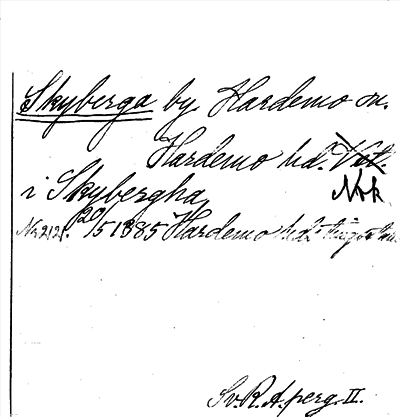 Skyberga by Hardemo sn.
Hardemo hd. Vst.
Nrk
i Skybergha
Nr 2121. 20/5 1385 Hardemo hds tingst
Sv. R. A. perg. II.